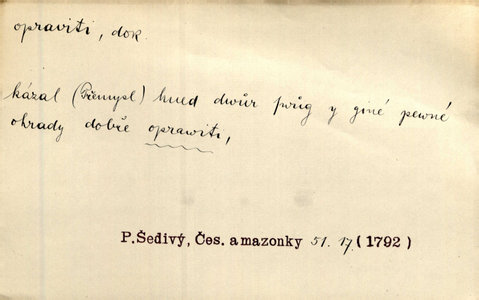 opraviti, dok.
kázal (Přemysl) hned dwůr swůg y giné pewné
ohrady dobře oprawiti,
P. Šedivý, Čes. amazonky 51. 17. (1792)